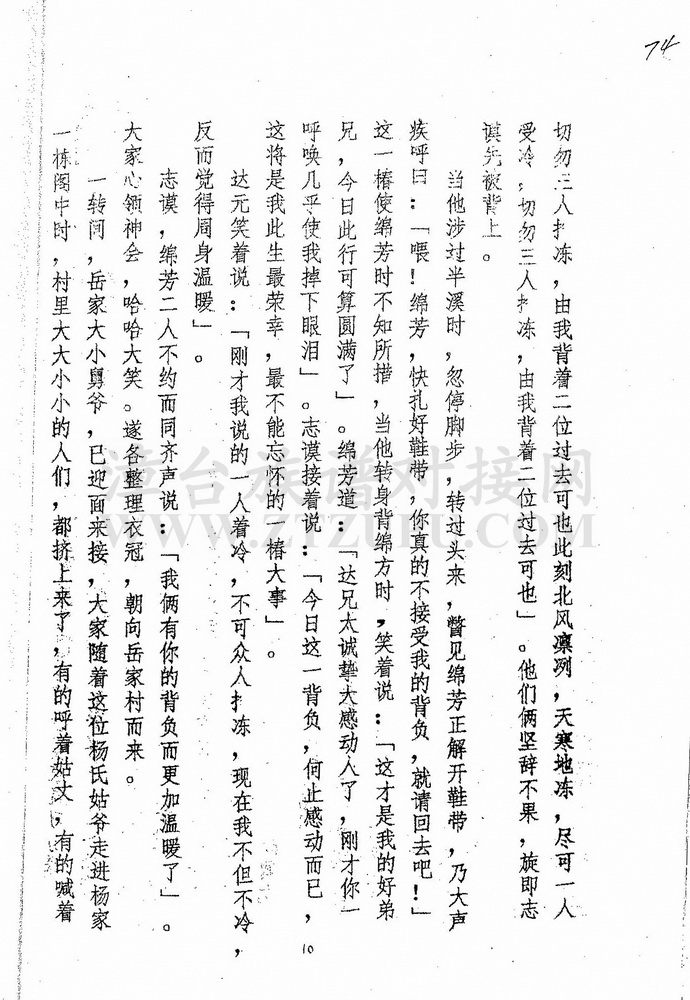 74
切勿三人扌冻，由我背着二位过去可也此刻北风凛冽，天寒地冻，尽可一人
受冷，切勿三人扌冻，由我背着二位过去可也」。他们俩坚辞不果，旋即志
谟先被背上。
当他涉过半溪时，忽停脚步，转过头来，瞥见绵芳正解开鞋带，乃大声
疾呼曰：「喂！绵芳，快扎好鞋带，你真的不接受我的背负，就请回去吧！」
这一椿使绵芳时不知所措，当他转身背绵方时，笑着说：「这才是我的好弟
兄，今日此行可算圆满了」。绵芳道：「达兄太诚挚大感动人了，刚才你一
呼唤几乎使我掉下眼泪」。志谟接着说：「今日这一背负，何止感动而已，
这将是我此生最荣幸，最不能忘怀的一椿大事」。
达元笑着说：「刚才我说的一人着冷，不可众人扌冻，现在我不但不冷，
反而觉得周身温暖」。
志谟，绵芳二人不约而同齐声说：「我俩有你的背负而更加温暖了」。
大家心领神会，哈哈大笑。遂各整理衣冠，朝向岳家村而来。
一转间，岳家大小舅爷，已迎面来接，大家随着这位杨氏姑爷走进杨家
一栋阁中时，村里大大小小的人们，都挤上来了，有的呼着姑丈，有的喊着
10
漳台族谱对接网
WWW.ZTZUPU.COM